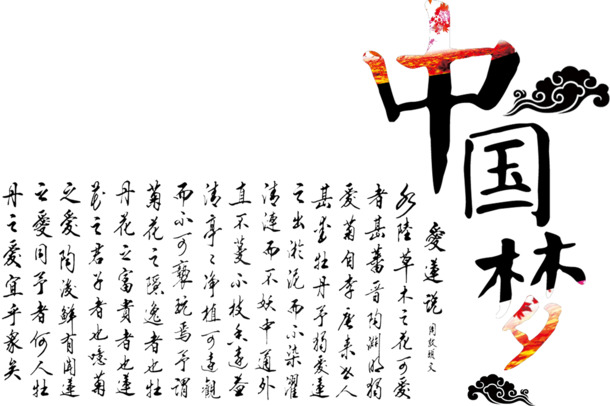 中国梦
愛蓮说
周敦頤文
水陸草木之花可愛
者甚蕃晋陶淵明獨
愛菊自李唐来世人
甚愛牡丹予獨愛蓮
之出於泥而不染濯
清漣而不妖中通外
直不蔓不枝香遠益
清亭々净植可遠觀
而不可褻玩焉予謂
菊花之隱逸者也牡
丹花之富貴者也蓮
花之君子者也噫菊
之愛陶後鮮有聞蓮
之愛同予者何人牡
丹之愛宜乎衆矣